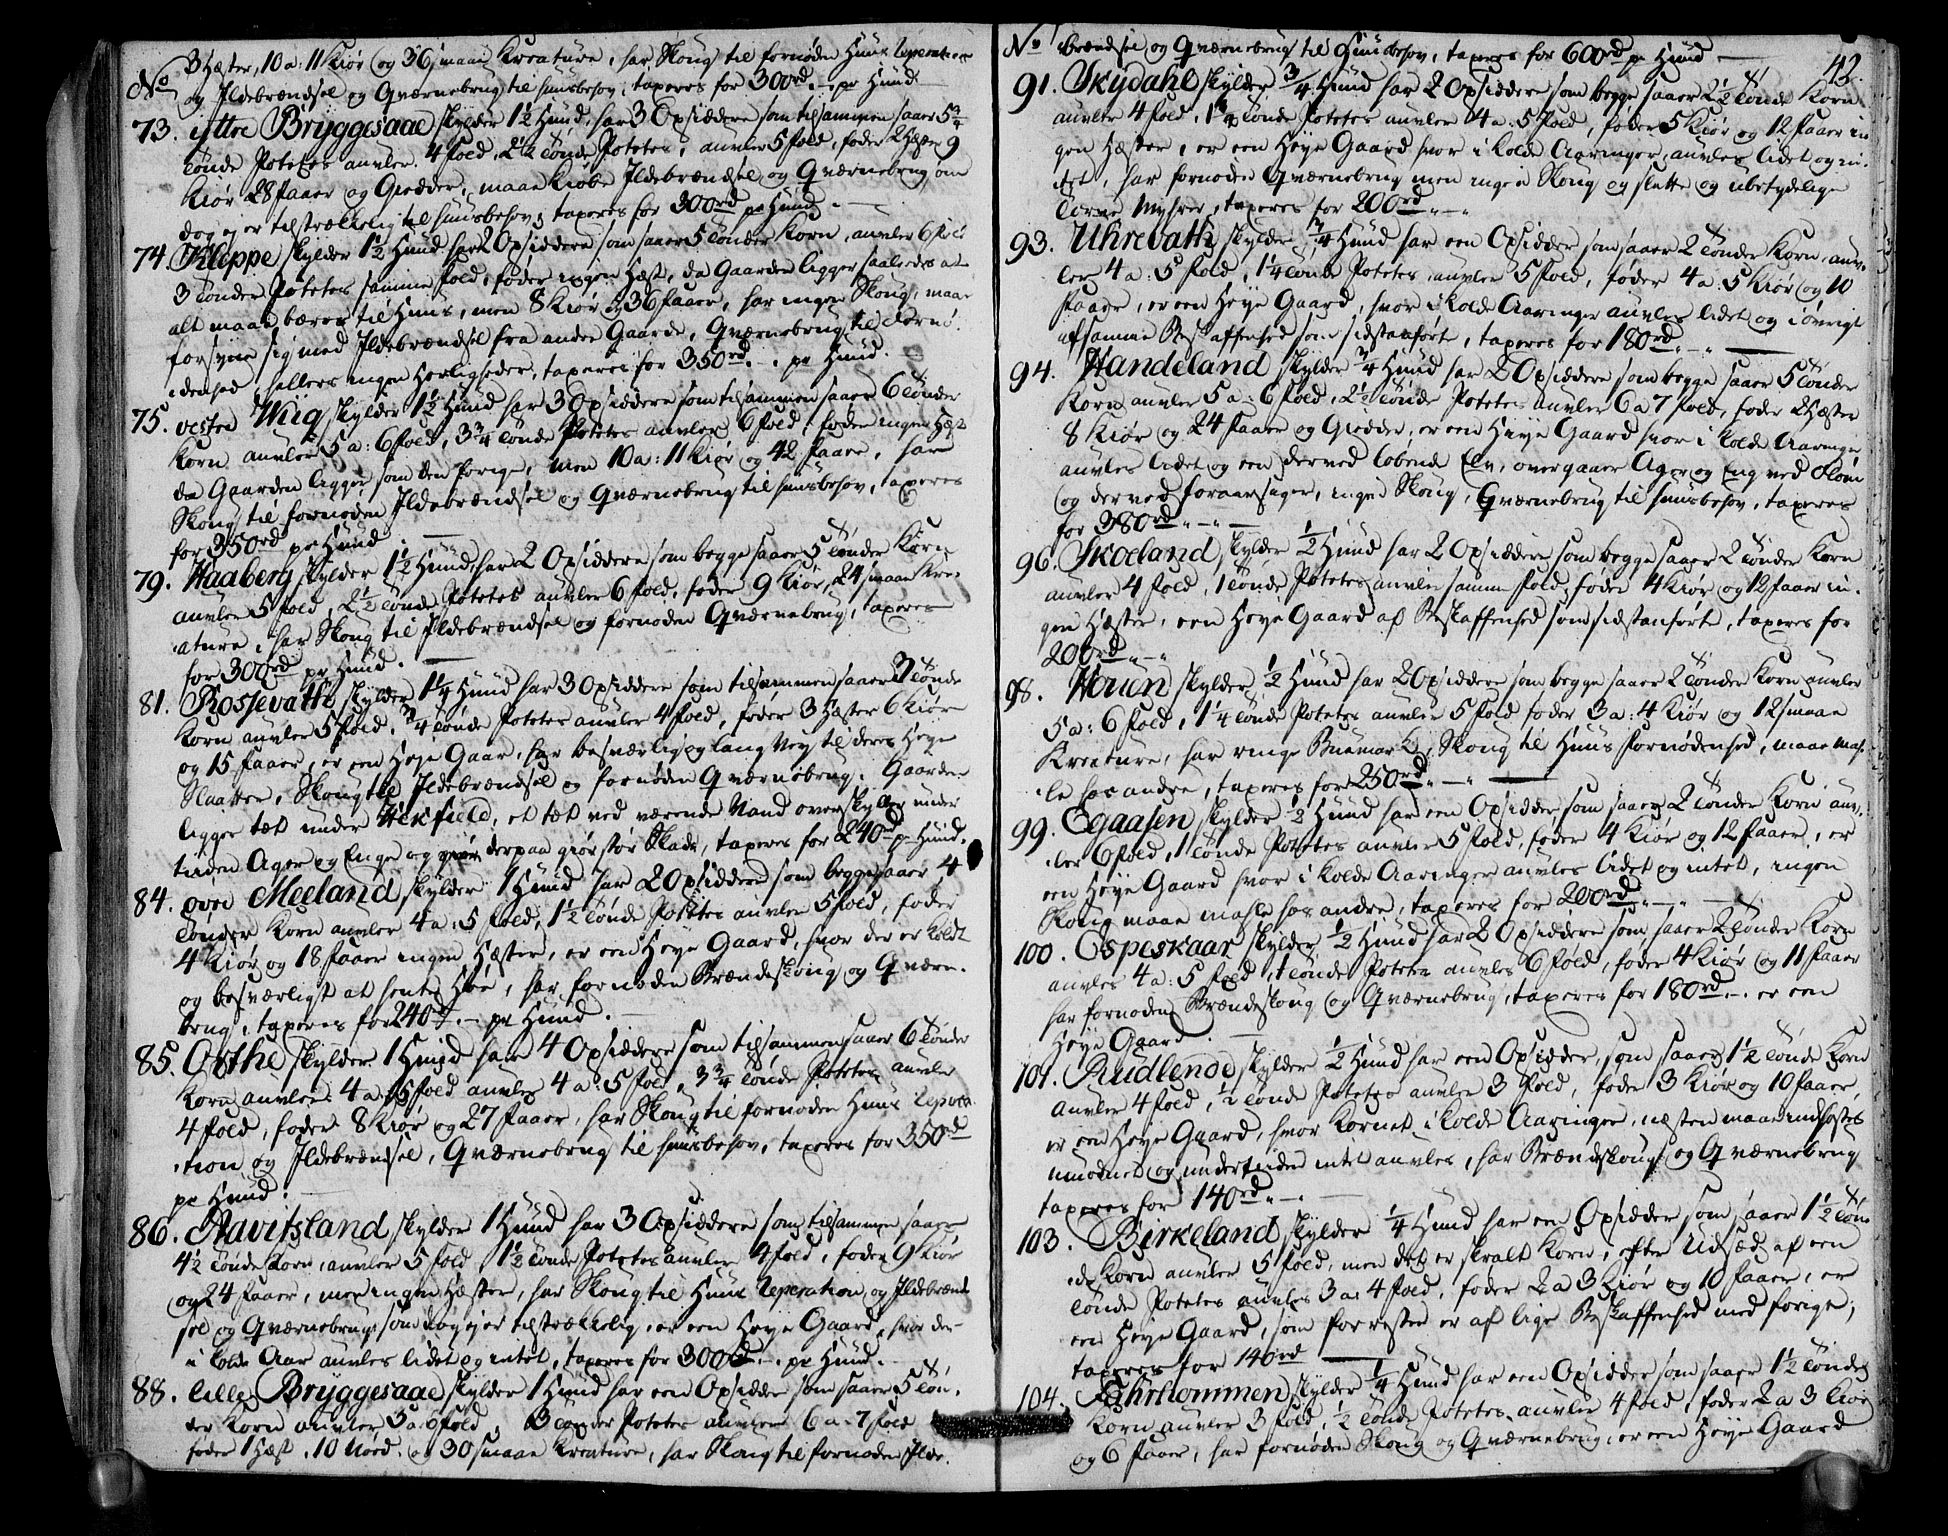 3 Hæster, 10 a: 11 Kiør og 36 smaae Kreature, har Skoug til fornøden Huus Reperation
No og Ildebrændsel og Qværnebrug til huusbehov, taxeres for 300rd .–. pr Huud
73. ÿttre Brÿggesaae skylder 1½ Huud, har 3 Opsiddere som tilsammen saaer 5¾
tønde Potetes auvler 4 fold, 2½ tønde Potetes, auvler 5 fold, føder 2 Hæster 9
Kiør 28 faaer og Gieder, maae kiøbe Ildebrændsel og Qværnebrug, om
dog ej er tilstrækkelig til huusbehov, taxeres for 300rd pr Huud . —
74. Kleppe skylder 1½ Huud har 2 Opsiddere som saaer 5 tønder Korn, auvler 6 fold
3 tønder Potetes samme fold, føder ingen Hæst, da Gaarden ligger saaledes at
alt maae bæres til Huus, men 8 Kiør og 36 faaer, har ingen Skoug, maae
forsyne sig med Ildebrændsel fra andre Gaarde, Qværnebrug til Fornø-
denhed, ellers ingen Herligheder, taxeres for 350rd .–. pr Huud. —
75. vestre Wiig skylder 1½ Huud har 3 Opsiddere som tilsammen saaer 6 tønder
Korn auvler 5 a: 6 fold, 3¾ tønde Potetes auvler 6 fold, føder ingen Hæst
da Gaarden ligger som den forige, men 10 a: 11 Kiør og 42 faaer, har
Skoug til fornøden Ildebrændsel og Qværnebrug til huusbehov, taxeres
for 350rd pr Huud . —
79. Haaberg skylder 1½ Huud, har 2 Opsiddere som begge saaer 5 tønder Korn
auvler 5 fold, 2½ tønde Potetes auvler 6 fold, føder 9 Kiør, 24 smaae Kre-
ature, har Skoug til Ildebrændsel og fornøden Qværnebrug, taxeres
for 300rd pr Huud . —
81. Rossevath skylder 1¼ Huud har 3 Opsiddere som tilsammen saaer 3 tønde
Korn auvler 5 fold, ¾ tønde Potetes auvler 4 fold, føder 3 Hæster 6 Kiør
og 15 faaer, er een Høye Gaar, har besværlig og lang Vey til deres Høye
Slaatter, Skoug til Ildebrændsel og fornøden Qværnebrug. Gaarden
ligger tæt under Hekfield, et tæt ved værende Vand overskyller under
tiiden Ager og Enge og derpaa giør stor Skade, taxeres for 240rd pr Huud.
84. øvre Meeland skylder 1 Huud har 2 Opsiddere som begge saaer 4
tønder Korn auvler 4 a: 5 fold, 1½ tønde Potetes auvler 5 fold, føder
4 Kiør og 18 faaer ingen Hæster, er een Høye Gaard, hvor der er koldt
og besværligt at hente Høe, har fornøden Brændeskoug og Qværne-
brug, taxeres for 240rd .–. pr Huud . —
85. Osthe skylder 1 Huud har 4 Opsiddere som tilsammen saaer 6 tønder
Korn auvler 4 a 5 fold auvler 4 a: 5 fold, 3¾ tønde Potetes auvler
4 fold, føder 8 Kiør og 27 faaer, har Skoug til fornøden Huus Repera-
tion og Ildebrændsel, Qværnebrug til huusbehov, taxeres for 350rd
pr Huud . —
86. Ravitsland skylder 1 Huud har 3 Opsiddere som tilsammen saaer
4½ tønde Korn, auvler 5 fold 1½ tønde Potetes auvler 4 fold, føder 9 Kiør
og 24 faaer, men ingen Hæster, har Skoug til Huus Reperation og Ildebrænd
sel og Qværnebrug som dog ej er tilstrækkelig, er een Høye Gaard, hvor der
i kolde Aar auvles lidet og intet, taxeres for 300rd .–. pr Huud. —
88. lille Brÿggesaae skylder 1 Huud har een Opsidder som saaer 5 tøn-
der Korn auvler 5 a 6 fold, 3 tønder Potetes auvler 6 a 7 fold
føder 1 Hæst, 10 Nød. og 30 smaae Kreature, har Skoug til fornøden Ilde-
42.
No brændsel og Qværnebrug til Huusbehov, taxeres for 600rd pr Huud —
91. Skÿdahl skylder ¾ Huud har 2 Opsiddere som begge saaer 2½ tønde Korn
auvler 4 fold, 1¾ tønde Potetes auvler 4 a. 5 fold, føder 5 Kiør og 12 faaer in
gen Hæster, er een Høye Gaard hvor i kolde Aaringer, auvles lidet og in
tet, har fornøden Qværnebrug men ingen Skoug og slette og ubetydelige
Torve Myhrer, taxeres for 200rd „–„
93. Uhrevath skylder ¾ Huud har een Opsidder som saaer 2 tønder Korn auv-
ler 4 a: 5 fold, 1¼ tønde Potetes auvler 5 fold, føder 4 a: 5 Kiør og 10
faaer, er een Høye Gaard, hvor i kolde Aaringer auvles lidet og i øvrigt
af samme Beskaffenhed som sidstanført, taxeres for 180rd „–„ —
94. Handeland skylder ¾ Huud har 2 Opsiddere som begge saaer 5 tønder
Korn auvler 5 a: 6 fold, 2½ tønde Potetes auvler 6 a 7 fold, føder 2 Hæster
8 Kiør og 24 faaer og Gieder, er een Høye Gaard hvor i kolde Aaringer
auvles lidet og een derved løbende Elv, overgaaer Ager og Eng ved flom
og derved foraarsager, ingen Skoug, Qværnebrug til huusbehov, taxeres
for 380rd „–„ —
96. Skoeland skylder ½ Huud har 2 Opsiddere som begge saaer 2 tønder Korn
auvler 4 fold, 1 tønde Potetes auvler samme fold, føder 4 Kiør og 12 faaer in-
gen Hæster, een Høye Gaard af Beskaffenhed som sidstanførte, taxeres for
200rd „–„
98. Houen skylder ½ Huud har 2 Opsiddere som begge saaer 2 tønder Korn auvler
5 a: 6 fold, 1¼ tønde Potetes auvler 5 fold føder 3 a: 4 Kiør og 12 smaae
Kreature, har ringe Buemark, Skoug til Huus fornødenhed, maae mah-
le hos andre, taxeres for 250rd „–„ —
99. Egaasen skylder ½ Huud har een Opsidder som saaer 2 tønder Korn auv-
ler 6 fold, 1 tønde Potetes auvler 5 fold, føder 4 Kiør og 12 faaer, er
een Høye Gaard hvor i kolde Aaringer auvles lidet og intet, ingen
Skoug maae mahle hos andre, taxeres for 200rd „–„ —
100. Espeskaar skylder ½ Huud har 2 Opsiddere som saaer 2 tønder Korn
auvler 4 a: 5 fold, 1 tønde Potetes auvler 6 fold, føder 4 Kiør og 11 faaer
har fornøden Brændeskoug og Qværnebrug, taxeres for 180rd .–. er een
Høye Gaard . —
101. Rudlende skylder ½ Huud har een Opsidder, som saaer 1½ tønde Korn
auvler 4 fold, ½ tønde Potetes auvler 3 fold, føder 3 Kiør og 10 faaer,
er een Høye Gaard, hvor Kornet i kolde Aaringer, næsten maae indhøstes
umodnet og undertiiden intet auvles, har Brændeskoug og Qværnebrug
taxeres for 140rd „–„ —
103. Birkeland skylder ¼ Huud har een Opsidder som saaer 1½ tøn
de Korn auvler 5 fold, men det er skralt Korn, efter Udsæd af een
tønde Potetes auvles 3 a: 4 fold, føder 2 a 3 Kiør og 10 faaer, er
een Høye Gaard, som forresten er af lige Beskaffenhed med forige,
taxeres for 140rd —
104. Ehrhommen skylder ¼ Huud har een Opsidder som saaer 1½ tønde
Korn auvler 3 fold, ½ tønde Potetes auvler 4 fold, føder 2 a 3 Kiør
og 6 faaer, har fornøden Skoug og Qværnebrug, er een Høye Gaard